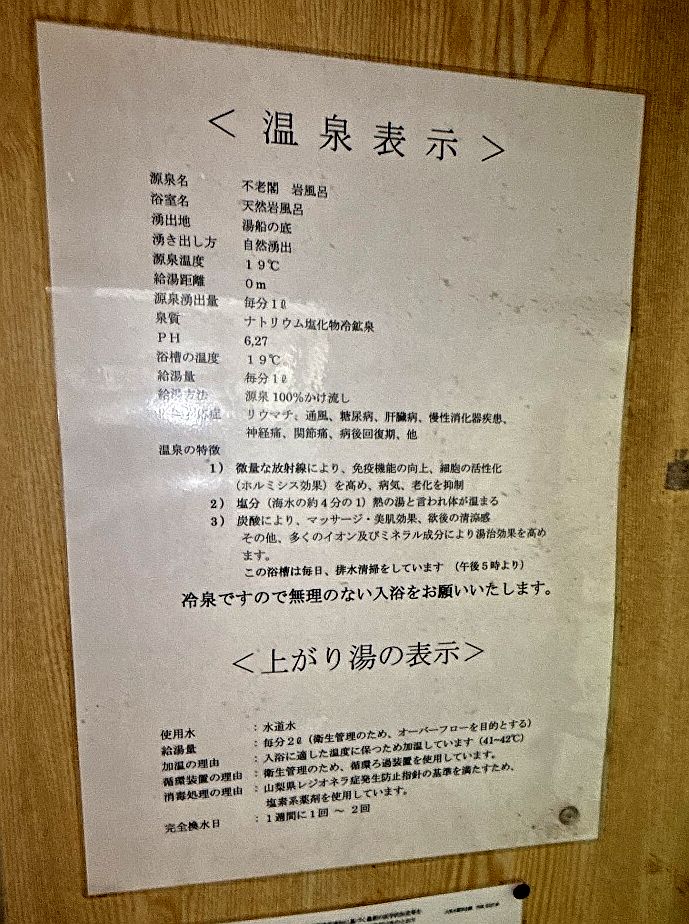 ＜ 温 泉 表 示 ＞
源泉名 不老閣 岩風呂
浴室名 天然岩風呂
湧出地 湯船の底
湧き出し方 自然湧出
源泉温度 １９℃
給湯距離 ０ｍ
源泉湧出量 毎分１ℓ
泉質 ナトリウム塩化物冷鉱泉
ＰＨ 6,27
浴槽の温度 １９℃
給湯量 毎分１ℓ
給湯方法 源泉100%かけ流し
リウマチ、通風、糖尿病、肝臓病、慢性消化器疾患、
神経痛、関節痛、病後回復期、他
温泉の特徴
１） 微量な放射線により、免疫機能の向上、細胞の活性化
（ホルミシス効果）を高め、病気、老化を抑制
２） 塩分（海水の約４分の１）熱の湯と言われ体が温まる
３） 炭酸により、マッサージ・美肌効果、欲後の清涼感
その他、多くのイオン及びミネラル成分により湯治効果を高め
ます。
この浴槽は毎日、排水清掃をしています （午後５時より）
冷泉ですので無理のない入浴をお願いいたします。
＜上がり湯の表示＞
使用水 ：水道水
給湯量 ：毎分２ℓ（衛生管理のため、オーバーフローを目的とする）
加温の理由 ：入浴に適した温度に保つため加温しています（41~42℃）
循環装置の理由 ：衛生管理のため、循環ろ過装置を使用しています。
消毒処理の理由 ：山梨県レジオネラ症発生防止指針の基準を満たすため、
塩素系薬剤を使用しています。
完全換水日 ：１週間に１回 ～ ２回